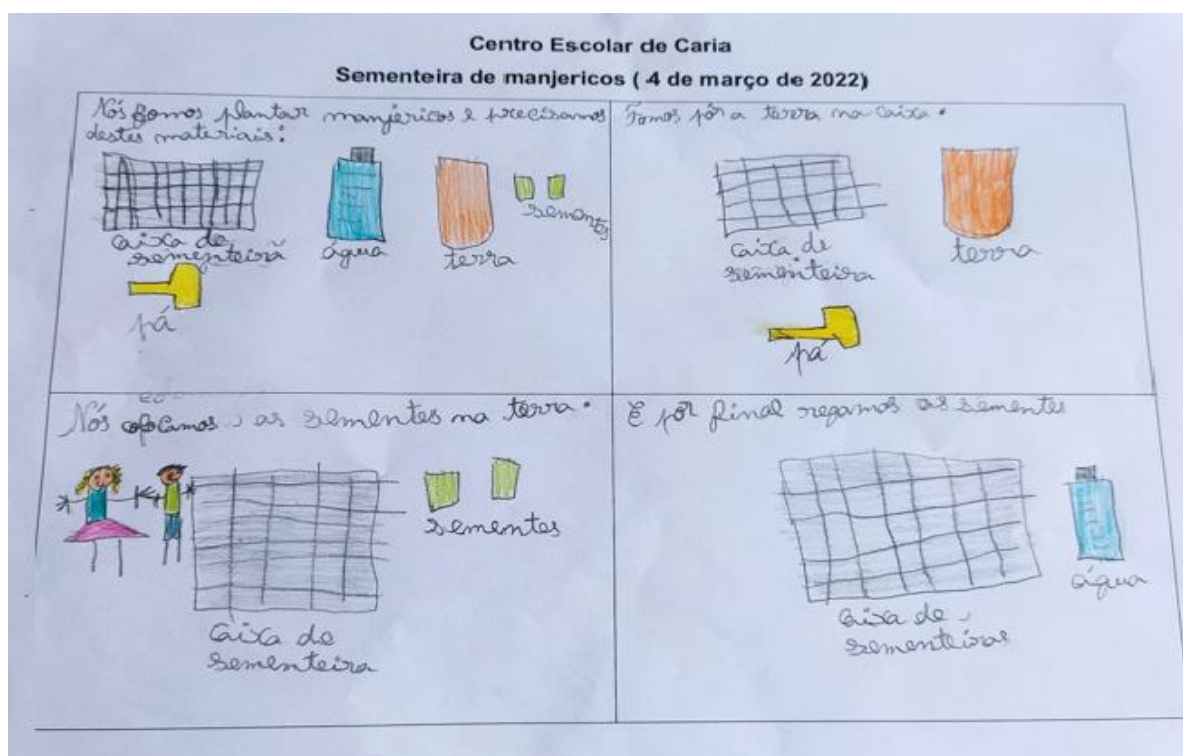 Centro Escolar de Caria
Sementeira de manjericos ( 4 de março de 2022)
Nós fomos plantar manjericos e precisamos
destes materiais:
caixa de
sementeira
água
terra
sementes
pá
Fomos pôr a terra na caixa.
caixa de
sementeira
terra
pá
Nós colocamos as sementes na terra.
sementes
caixa de
sementeira
E por final regamos as sementes
água
caixa de
sementeiras